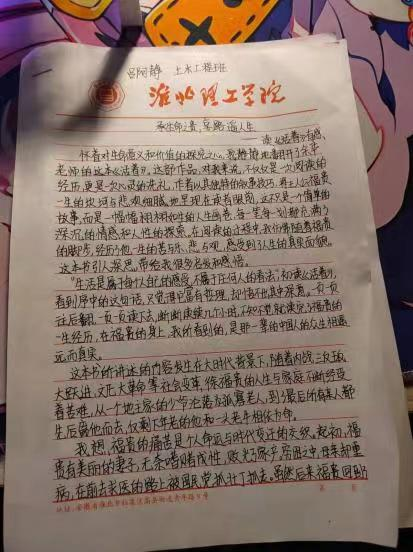 吕阿静 土木工程班
淮北理工学院
承生命之责,笃路遥人生
读《活着》有感
怀着对生命意义和价值的探究之心,我静静地翻开了余华
老师的这本《活着》。这部作品,对我来说,不仅仅是一次阅读的
经历,更是一次心灵的洗礼。作者以其独特的叙事技巧,将主人公福贵
一生的坎坷与悲欢细腻地呈现在读者眼前,这不只是一个简单的
故事,而是一幅幅栩栩如生的人生画卷,每一笔每一划都充满了
深沉的情感和人性的探索。在阅读的过程中,我仿佛随着福贵
的脚步,经历了他一生的苦与乐、悲与观,感受到了人生的真实而脆。
这本书引人深思,带给我很多启发和感悟。
"生活是属于每个人自己的感受,不属于任何人的看法"初读《活着》,
看到序中的这句话,只觉得它富有哲理,却悟不出其中深意。一页一页
往后翻,一页一页读下去,断断续续几个小时,不知不觉就读完了福贵的
一生经历,在福贵的身上,我所看到的,是那一辈的中国人的众生相,遥
远而真实。
这本书所讲述的内容发生在大时代背景下,随着内战、三反五反、
大跃进、文化大革命等社会变革,徐福贵的人生与家庭不断经受
着苦难,从一个地主家的少爷沦落为孤寡老人,到了最后所有亲人都
先后离他而去,仅剩下年老的他和一头老牛相依为命。
我想,福贵的痛苦是个人命运与时代变迁的交织。起初,福
贵有美丽的妻子,无奈嗜赌成性,败光了家产,穷困之中,母亲却重
病,在前去求医的路上被国民党抓壮丁抓去。虽然后来福贵回到
地址:安徽省淮北市杜集区高岳街道青年路9号